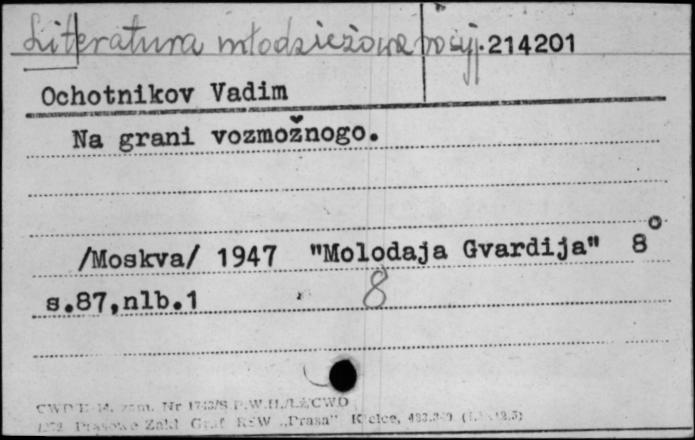 Literatura młodzieżowa rosyj. 214201
Ochotnikov Vadim
Na grani vozmožnogo.
/Moskva/ 1947 "Molodaja Gvardija" 8°
s.87,nlb.1 8
Zakl Graf RSW „Prasa” Kielce,